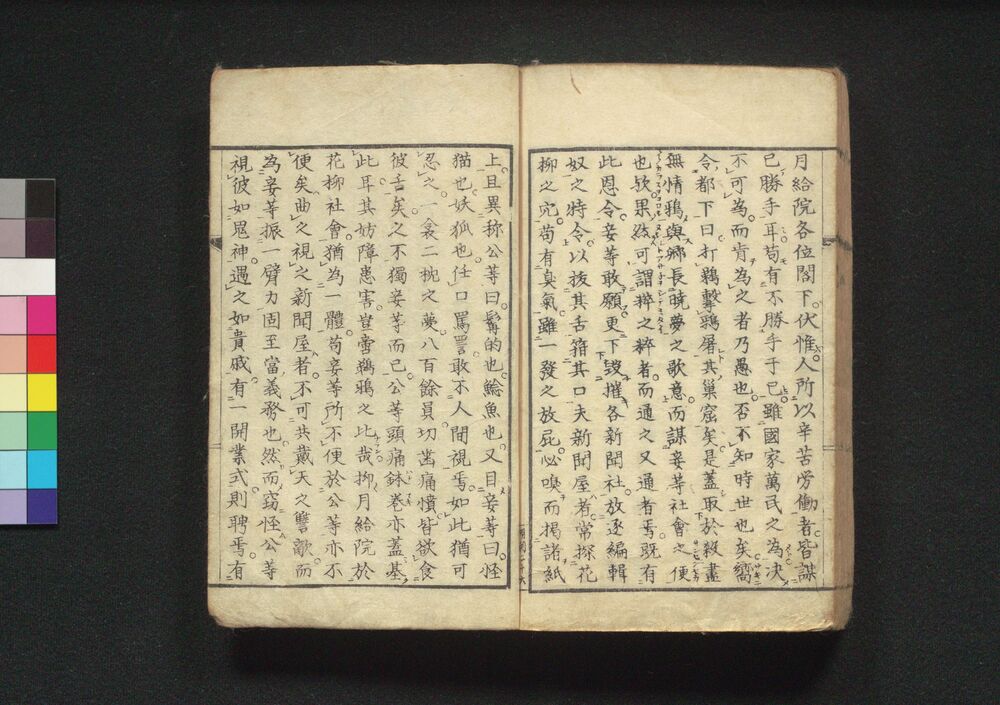 月給院各位閣下。伏惟人所以辛苦労働者。皆謀
己勝手耳。苟有不勝手于己。雖國家萬民之為。決
不可為。而肯為之者乃愚也。否不知時世也矣。嚮
令都下曰。打鵜擊鶚屠其巢窟矣。是蓋取於級盡
無情鴉與郷長暁夢之歌意。而謀妾等社會之便
也歟。果然可謂粹之粹者。而通之又通者焉。既有
此恩令。妾等敢願更下毀摧各新聞社。放逐編輯
奴之時令。以拔其舌箝其口。夫新聞屋者。常探花
柳之穴。苟有臭氣。雖一發之放屁。必嗅而揭諸紙
上。且異称公等曰。髯的也。鯰魚也。又目妾等曰。怪
猫也。妖狐也。任口罵詈。敢不人間視焉。如此猶可
忍之。一衾二枕之夢。八百餘員切齒痛憤。皆欲食
彼舌矣。之不獨妾等而已。公等頭痛鉢巻亦蓋基
此耳。其妨障患害。豈啻鵜鴉之比哉。抑月給院於
花柳社會。猶為一體。苟妾等所不便於公等亦不
便矣。曲之視之。新聞屋者。不可共戴天之讐敵。而
為妾等振一臂力。固至當義務也。然而窃怪公等
視彼如鬼神。遇之如貴戚。有一開業式。則聘焉。有